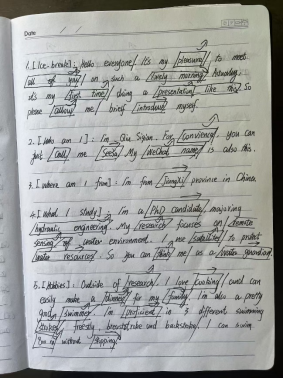 Date
1. [Ice-break]: Hello everyone! It's my pleasure to meet
all of you on such a lovely morning. Actually,
it's my first time doing a presentation like this. So
please allow me brief introduce myself.
2. [Who am I]: I'm Qiu Siyian. For convience, you can
just call me My WeChat name is also this.
3. [Where am I from]: I'm from JiangXi province in China.
4. [What I study]: I'm a PhD candidate, majoring
hydraulic engineering. My research focuses on remote
sensing of water environment. use satellites to protect
water resources. So you can think me as a water guardian.
5. [Hobbies]: Outside of research, I love cooking and can
easily make a dinner for my family. I'm also a pretty
good swimmer. I'm proficient in 3 different swimming
strokes, freestly, breaststroke and backstroke. I can swim
without stopping.